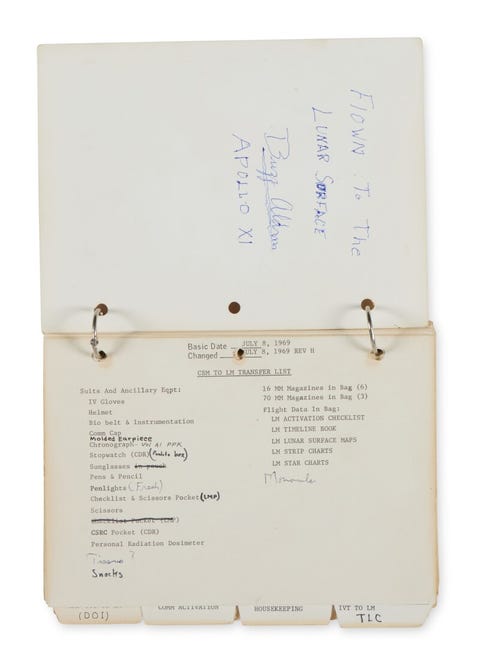 FlOWN To The
LUNAR SURFACE
Buzz Aldrin
APOLLO XI
Basic Date JULY 8, 1969
Changed JULY 8, 1969 REV H
CSM TO LM TRANSFER LIST
Suits And Ancillary Eqpt:
IV Gloves
Helmet
Bio belt & Instrumentation
Comm Cap
Molded Earpiece
Chronograph- PPK
Stopwatch (CDR)
Sunglasses in pouch
Pens & Pencil
Penlights (Fresh)
Checklist & Scissors Pocket (LMP)
Scissors
Checklist Pocket
CSRC Pocket (CDR)
Personal Radiation Dosimeter
Tissues ?
Snacks
16 MM Magazines in Bag (6)
70 MM Magazines in Bag (3)
Flight Data In Bag:
LM ACTIVATION CHECKLIST
LM TIMELINE BOOK
LM LUNAR SURFACE MAPS
LM STRIP CHARTS
LM STAR CHARTS
Monocular
(DOI)
COMM ACTIVATION
HOUSEKEEPING
IVT TO LM
TLC